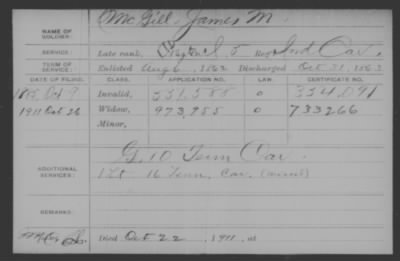 NAME OF SOLDIER: McGill, James M.
SERVICE: Late rank, I, 5 Reg't Ind Cav.
TERM OF SERVICE: Enlisted Aug 6, 1862 Discharged Oct 31, 1863
DATE OF FILING. CLASS. APPLICATION NO. LAW. CERTIFICATE NO.
Oct 9 Invalid, 331,588 o 334,091
1911 Oct 26 Widow, 973,985 o 733266
Minor,
ADDITIONAL SERVICES: G. 10 Tenn Cav.
1 Lt 16 Tenn. Cav.
REMARKS:
Died Oct 22, 1911, at